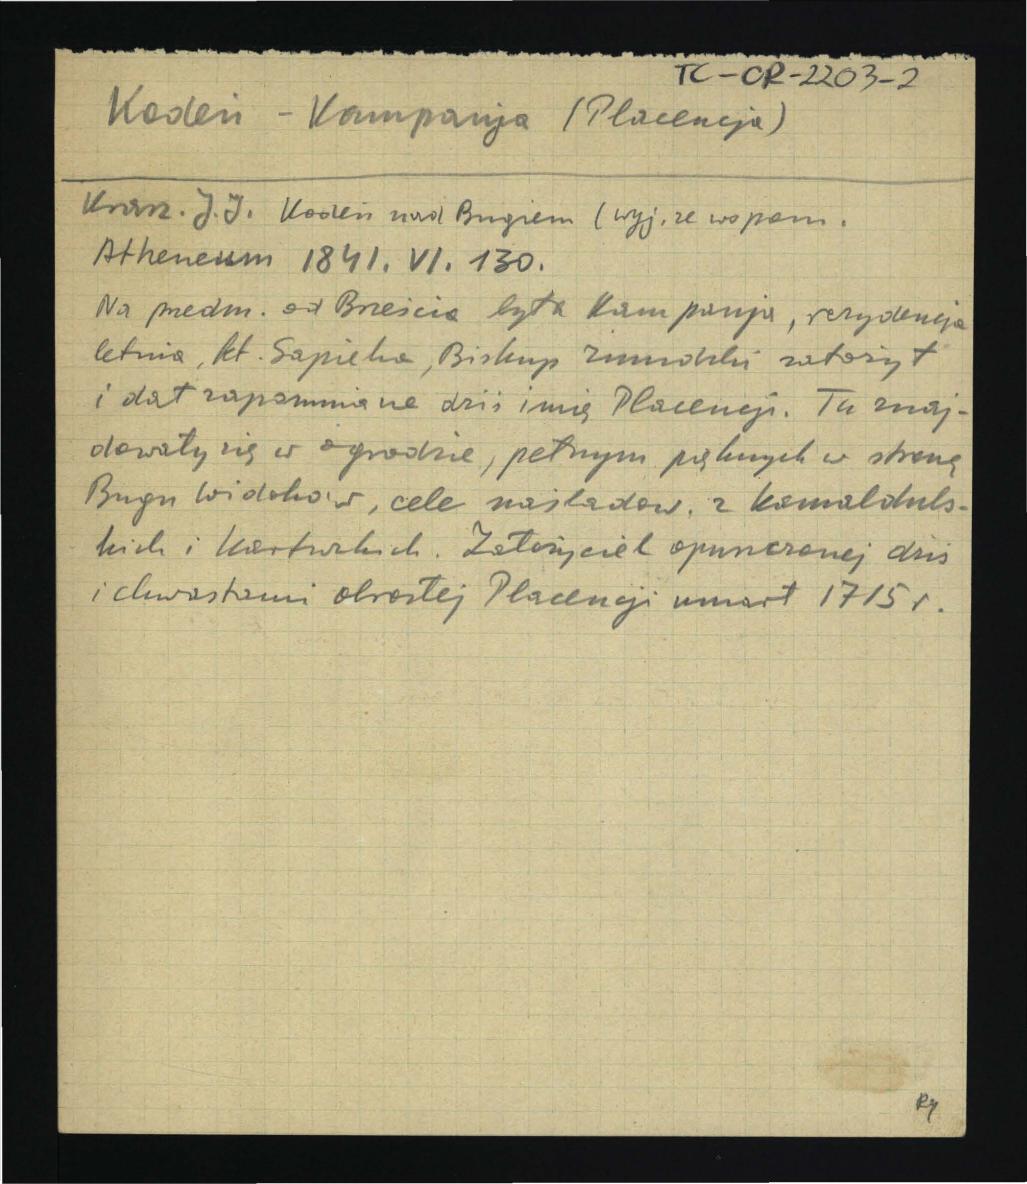 TC-OR-2203-2
Kodeń - Kampanja (Placencja)
Krasz. J.I. Kodeń nad Bugiem (wyj. ze wspom.
Atheneum 1841. VI. 130.
Na przedm. od Brześcia była Kampanja, rezydencja
letnia, kt. Sapieha, Biskup żmudzki założył
i dał zapomniane dziś imię Placencji. Tu znaj-
dowały się w ogrodzie, pełnym pięknych w stronę
Bugu widoków, cele naśladow. z kamalduls-
kich i Kartuzkich. Założyciel opuszczonej dziś
i chwastami obrosłej Placencji umarł 1715 r.
Ry